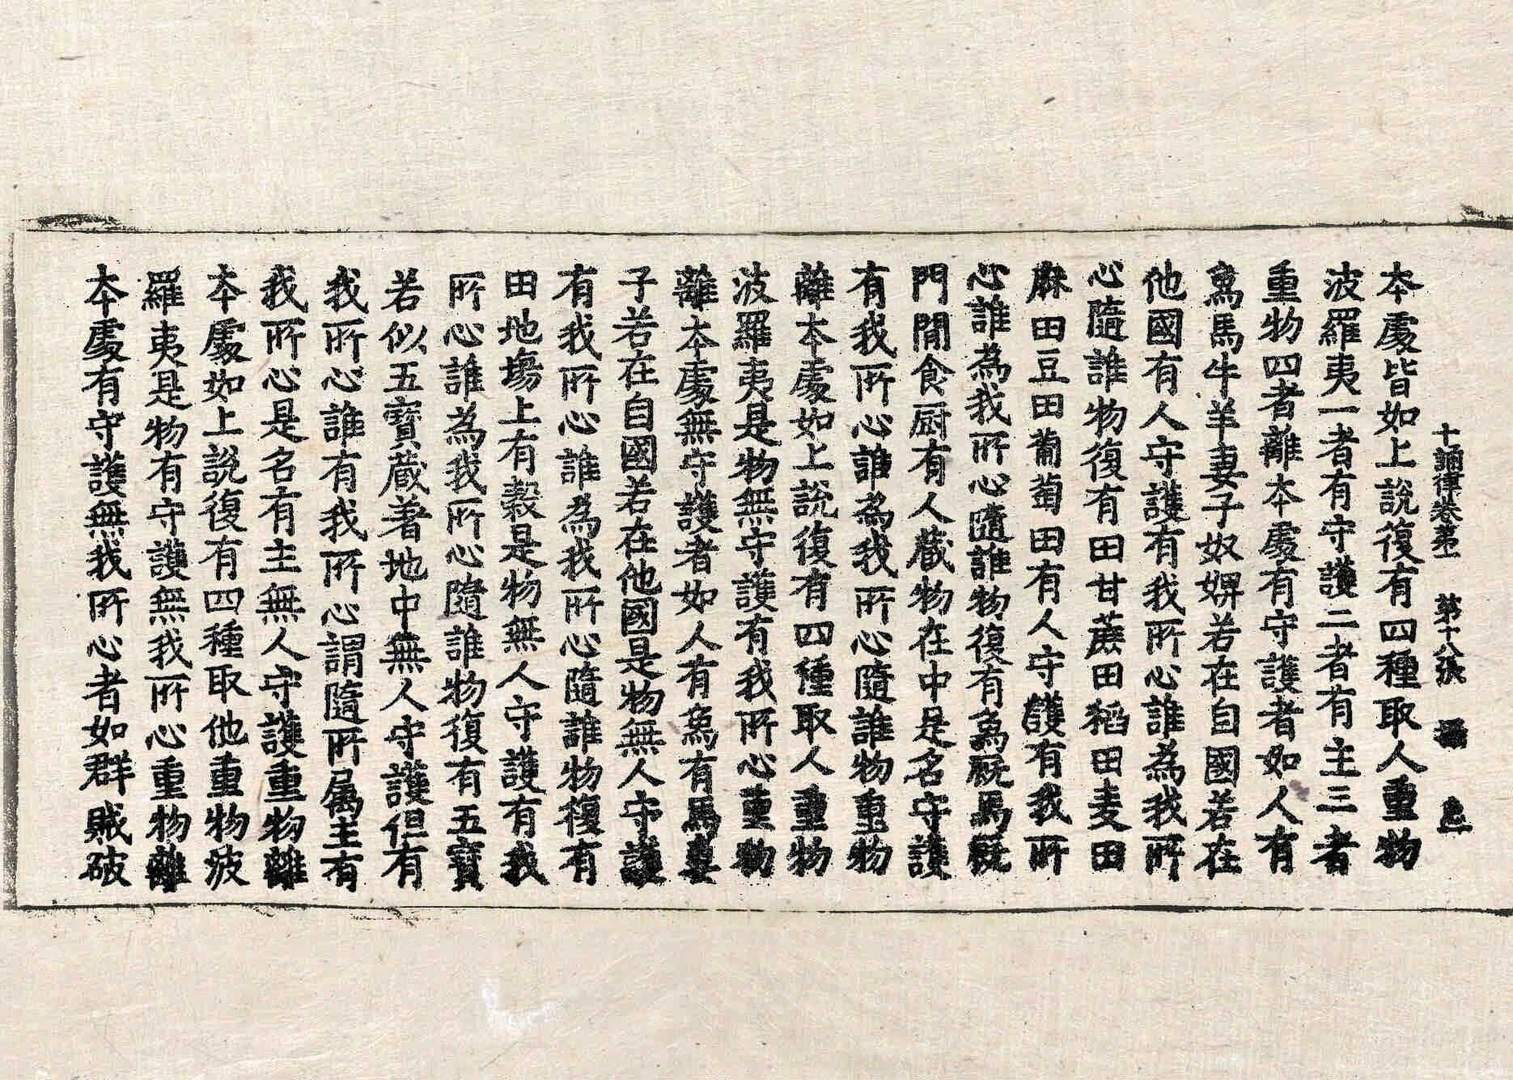 十誦律卷第一 第十八張
本處皆如上說復有四種取人重物
波羅夷一者有守護二者有主三者
重物四者離本處有守護者如人有
象馬牛羊妻子奴婢若在自國若在
他國有人守護有我所心誰為我所
心隨誰物復有田甘蔗田稻田麦田
麻田豆田葡萄田有人守護有我所
心誰為我所心隨誰物復有象厩馬厩
門閒食厨有人藏物在中是名守護
有我所心誰為我所心隨誰物重物
離本處如上說復有四種取人重物
波羅夷是物無守護有我所心重物
離本處無守護者如人有象有馬妻
子若在自國若在他國是物無人守護
有我所心誰為我所心隨誰物復有
田地場上有穀是物無人守護有我
所心誰為我所心隨誰物復有五寶
若似五寶藏著地中無人守護但有
我所心誰有我所心謂隨所属主有
我所心是名有主無人守護重物離
本處如上說復有四種取他重物波
羅夷是物有守護無我所心重物離
本處有守護無我所心者如群賊破